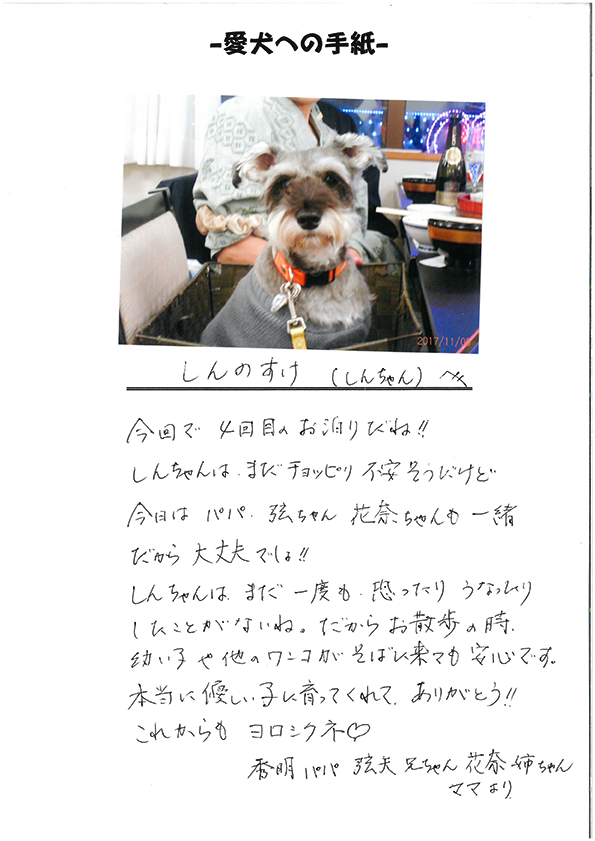 -愛犬への手紙-
2017/11/0
しんのすけ (しんちゃん) へ
今回で 4回目の お泊りだね!!
しんちゃんは、まだ チョッピリ 不安そうだけど
今日は パパ、弦ちゃん 花奈ちゃんも 一緒
だから 大丈夫でしょ!!
しんちゃんは、まだ 一度も、恐ったり うなったり
したことがないね。だから お散歩の時、
幼い子や他のワンコがそばに来ても安心です。
本当に優しい子に育ってくれて、ありがとう!!
これからも ヨロシクネ♡
秀明パパ 弦矢兄ちゃん 花奈姉ちゃん
ママより